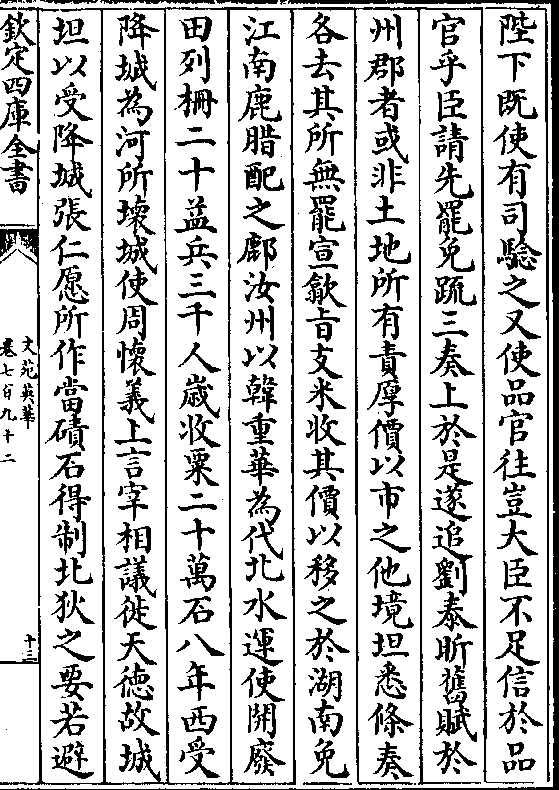 陛下既使有司驗之又使品官往豈大臣不足信於品
官乎臣請先罷免疏三奏上於是遂追劉泰昕舊賦於
州郡者或非土地所有責厚價以市之他境坦悉條奏
各去其所無罷宣歙㫖支米收其價以移之於湖南免
江南鹿腊配之鄜汝州以韓重華為代北水運使開廢
田列柵二十益兵三千人歲收粟二十萬石八年西受
降城為河所壞城使周懷義上言宰相議徙天德故城
坦以受降城張仁愿所作當磧石得制北狄之要若避
欽定四庫全書
文苑英華
卷七百九十二
十三